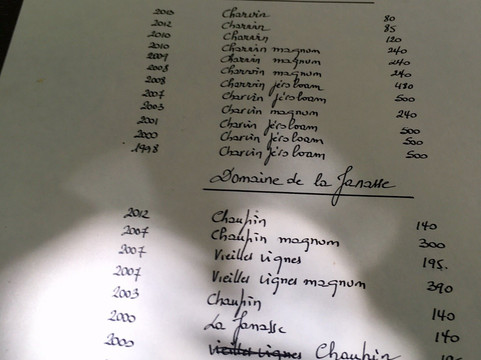 Charvin 80
2012 Charvin 85
2010 Charvin 120
2010 Charvin magnum 240
2009 Charvin magnum 240
2008 Charvin magnum 240
2008 Charvin jéroboam 480
2007 Charvin jéroboam 500
2003 Charvin magnum 240
2001 Charvin jéroboam 500
2000 Charvin jéroboam 500
1998 Charvin jéroboam 500
Domaine de la Janasse
2012 Chaupin 140
2007 Chaupin magnum 300
2007 Vieilles Vignes 195.
2007 Vieilles Vignes magnum 390
2003 Chaupin 140
2000 La Janasse 140
2000 Vieilles Vignes Chaupin